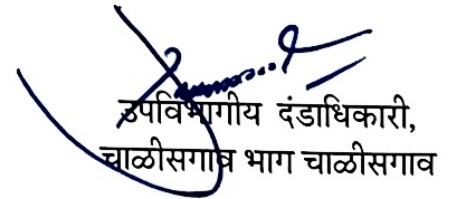 उपविभागीय दंडाधिकारी,
चाळीसगाव भाग चाळीसगाव